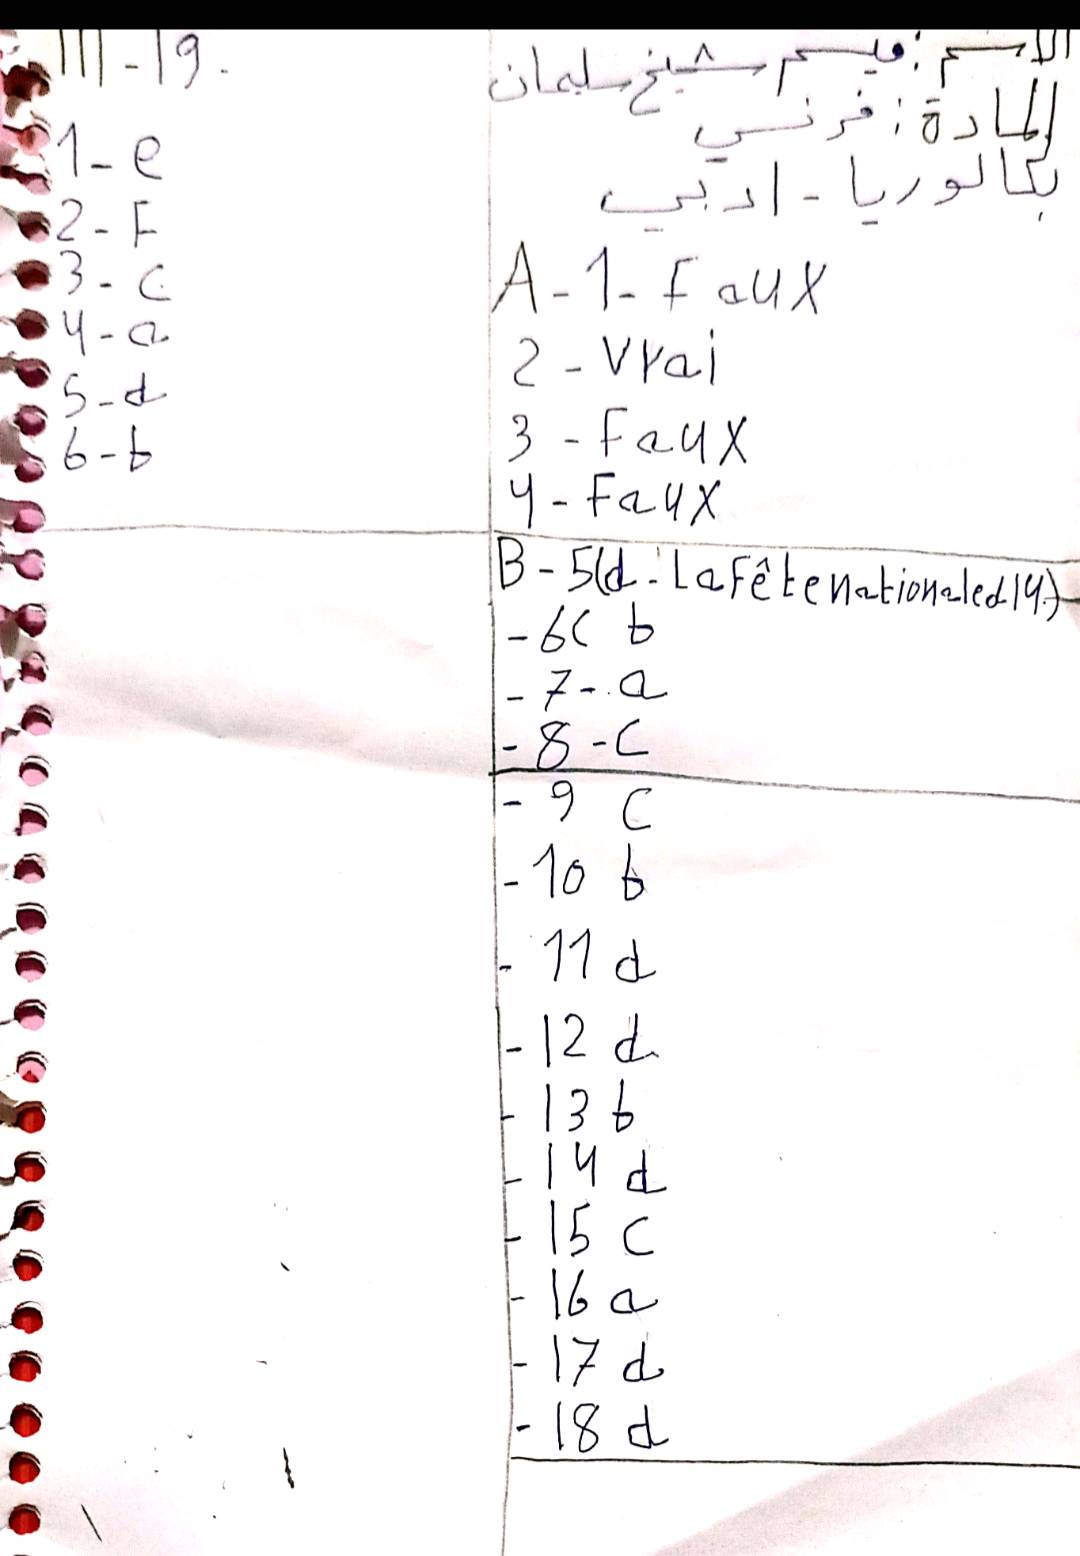 الاسم: قيسم شيخ سليمان
المادة: فرنسي
بكالوريا - ادبي
A - 1 - Faux
2 - Vrai
3 - Faux
4 - Faux
B - 5(d - La Fête nationale d 14)
- 6( b
- 7 - a
- 8 - C
- 9 C
- 10 b
- 11 d
- 12 d
- 13 b
- 14 d
- 15 C
- 16 a
- 17 d
- 18 d
III - 19 -
1 - e
2 - F
3 - C
4 - a
5 - d
6 - b